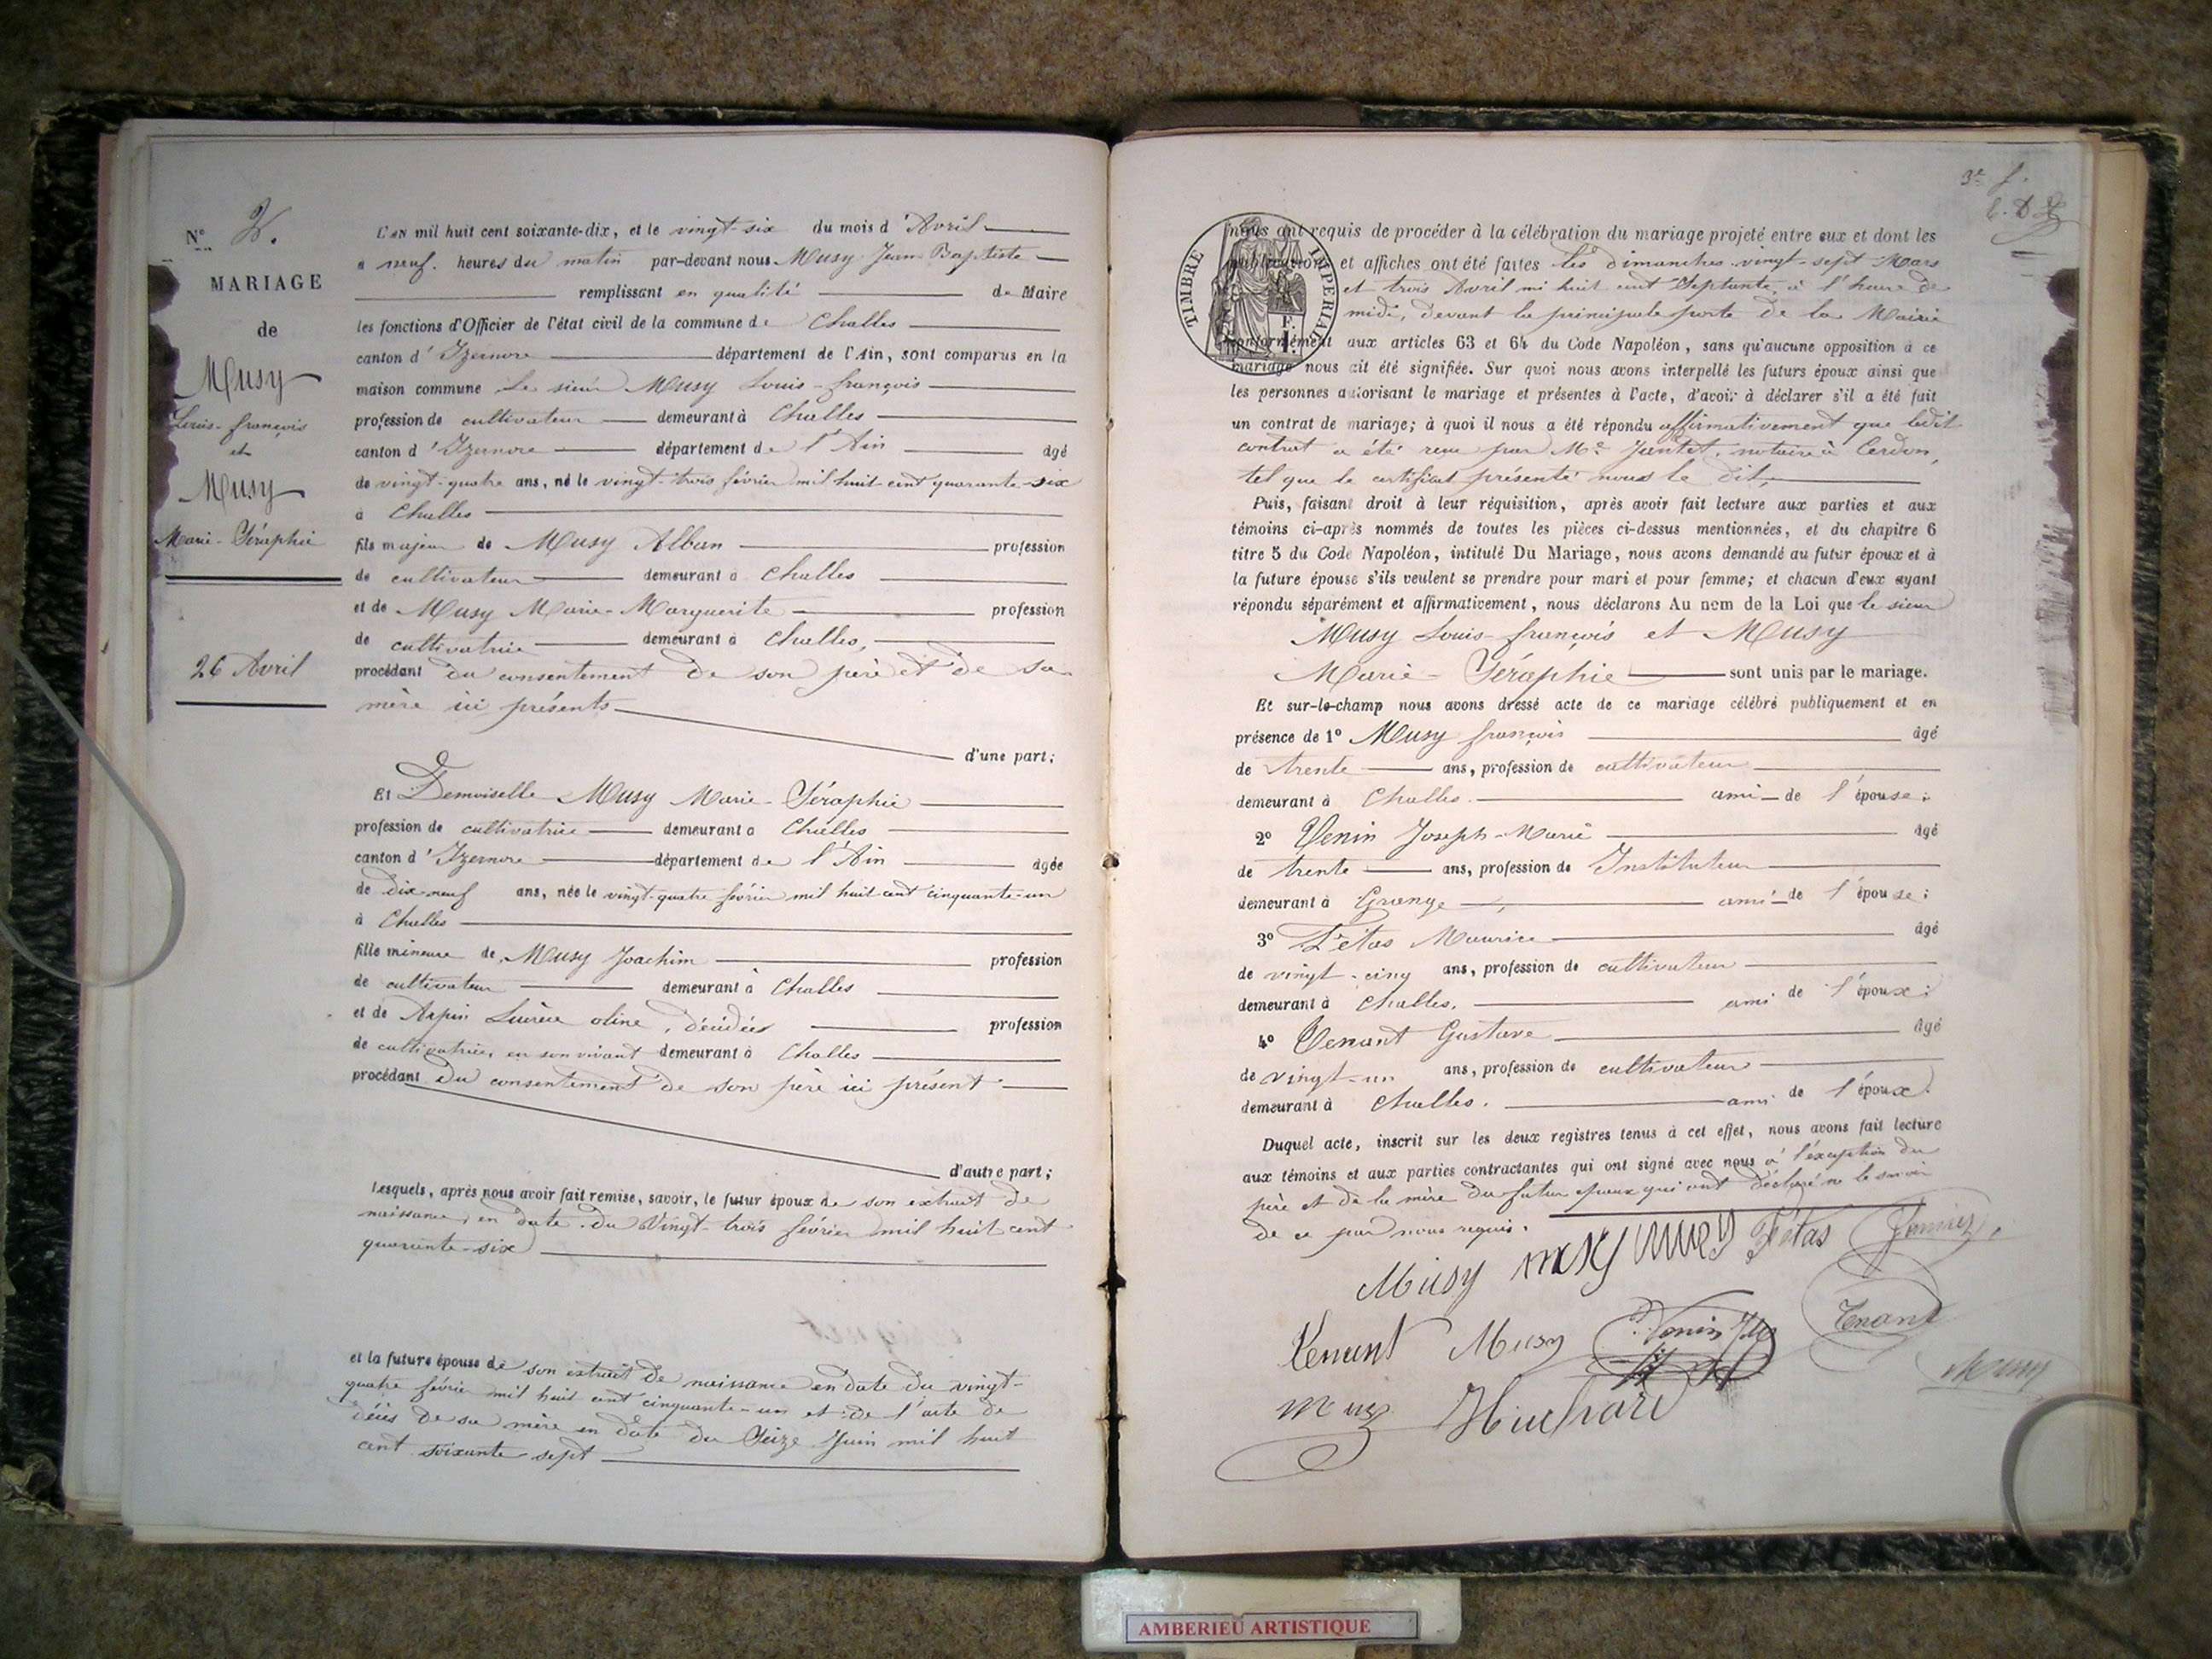 N° 2.
MARIAGE
de
Musy
Louis-françois
et
Musy
Marie-Séraphie
26 Avril
L'AN mil huit cent soixante-dix, et le vingt-six du mois d'Avril
à neuf heures du matin par-devant nous Musy Jean-Baptiste
remplissant en qualité de Maire
les fonctions d'Officier de l'état civil de la commune de Challes
canton d'Izernore département de l'Ain, sont comparus en la
maison commune Le sieur Musy Louis-françois
profession de cultivateur demeurant à Challes
canton d'Izernore département de l'Ain âgé
de vingt-quatre ans, né le vingt-trois février mil huit-cent quarante-six
à Challes
fils majeur de Musy Alban profession
de cultivateur demeurant à Challes
et de Musy Marie-Marguerite profession
de cultivatrice demeurant à Challes,
procédant du consentement de son père et de sa
mère ici présents
d'une part;
Et Demoiselle Musy Marie-Séraphie
profession de cultivatrice demeurant à Challes
canton d'Izernore département de l'Ain âgée
de dix-neuf ans, née le vingt-quatre février mil huit-cent cinquante-un
à Challes
fille mineure de Musy Joachim profession
de cultivateur demeurant à Challes
et de Arpin décédée profession
de cultivatrice, en son vivant demeurant à Challes
procédant du consentement de son père ici présent
d'autre part;
Lesquels, après nous avoir fait remise, savoir, le futur époux de son extrait de
naissance, en date du Vingt-trois février mil huit cent
quarante-six
et la future épouse de son extrait de naissance en date du vingt-
quatre février mil huit cent cinquante-un et de l'acte de
décès de sa mère en date du Seize Juin mil huit
cent soixante sept
3e f.
TIMBRE IMPERIAL
F.
1.
nous ont requis de procéder à la célébration du mariage projeté entre eux et dont les
publications et affiches ont été faites les dimanches vingt-sept Mars
et trois Avril mi huit cent Septante, à l'heure de
midi, devant la principale porte de la Mairie
conformément aux articles 63 et 64 du Code Napoléon, sans qu'aucune opposition à ce
mariage nous ait été signifiée. Sur quoi nous avons interpellé les futurs époux ainsi que
les personnes autorisant le mariage et présentes à l'acte, d'avoir à déclarer s'il a été fait
un contrat de mariage; à quoi il nous a été répondu affirmativement que ledit
contrat a été reçu par Me Jantet, notaire à Cerdon,
tel que le certificat présenté nous le dit,
Puis, faisant droit à leur réquisition, après avoir fait lecture aux parties et aux
témoins ci-après nommés de toutes les pièces ci-dessus mentionnées, et du chapitre 6
titre 5 du Code Napoléon, intitulé Du Mariage, nous avons demandé au futur époux et à
la future épouse s'ils veulent se prendre pour mari et pour femme; et chacun d'eux ayant
répondu séparément et affirmativement, nous déclarons Au nom de la Loi que le sieur
Musy Louis-françois et Musy
Marie-Séraphie sont unis par le mariage.
Et sur-le-champ nous avons dressé acte de ce mariage célébré publiquement et en
présence de 1° Musy françois âgé
de trente ans, profession de cultivateur
demeurant à Challes. ami de l'épouse;
2° Venin Joseph-Marie âgé
de trente ans, profession de Instituteur
demeurant à Grange ami de l'épouse;
3° Fétas Maurice âgé
de vingt-cinq ans, profession de cultivateur
demeurant à Challes. ami de l'époux;
4° Tenant Gustave âgé
de vingt-un ans, profession de cultivateur
demeurant à Challes. ami de l'époux.
Duquel acte, inscrit sur les deux registres tenus à cet effet, nous avons fait lecture
aux témoins et aux parties contractantes qui ont signé avec nous à l'exception du
père et de la mère du futur époux qui ont déclaré ne le savoir
de ce par nous requis.
Musy musy musy Fétas
Tenant Musy Venin Tenant
Musy
Huchard
AMBERIEU ARTISTIQUE